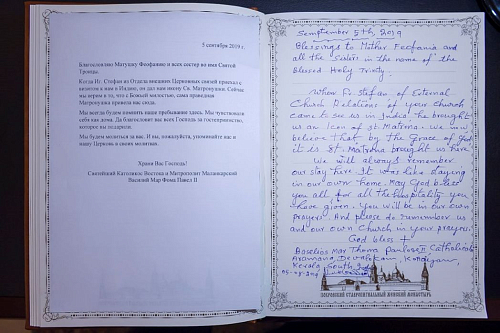 5 сентября 2019 г.
Благословляю Матушку Феофанию и всех сестер во имя Святой
Троицы.
Когда Иг. Стефан из Отдела внешних Церковных связей приехал с
визитом к нам в Индию, он дал нам икону Св. Матронушки. Сейчас
мы верим в то, что с Божьей милостью, сама праведная
Матронушка привела нас сюда.
Мы всегда будем помнить наше пребывание здесь. Мы чувствовали
себя как дома. Да благословит вас всех Господь за гостеприимство,
которое вы подарили.
Мы будем молиться за вас. И вы, пожалуйста, упоминайте нас и
нашу Церковь в своих молитвах.
Храни Вас Господь!
Святейший Католикос Востока и Митрополит Маланкарский
Василий Мар Фома Павел II
September 5th, 2019
Blessings to Mother Feofania and
all the Sisters in the name of the
Blessed Holy Trinity.
When Fr. Stefan of External
Church Relations of your church
came to see us in India, he brought
us an Icon of St. Matrona. We now
believe that by the Grace of God
it is St. Matrona brought us here
We will always remember
our stay here. It was like staying
in our own home. May God bless
you all for all the hospitality you
have given. You will be in our own
prayers. And please do remember us
and our own Church in your prayers.
God bless +
Baselios Mar Thoma Paulose II, Catholicos
Aramana, Devalokam, Kottayam,
Kerala, South
ПОКРОВСКИЙ СТАВРОПИГИАЛЬНЫЙ ЖЕНСКИЙ МОНАСТЫРЬ